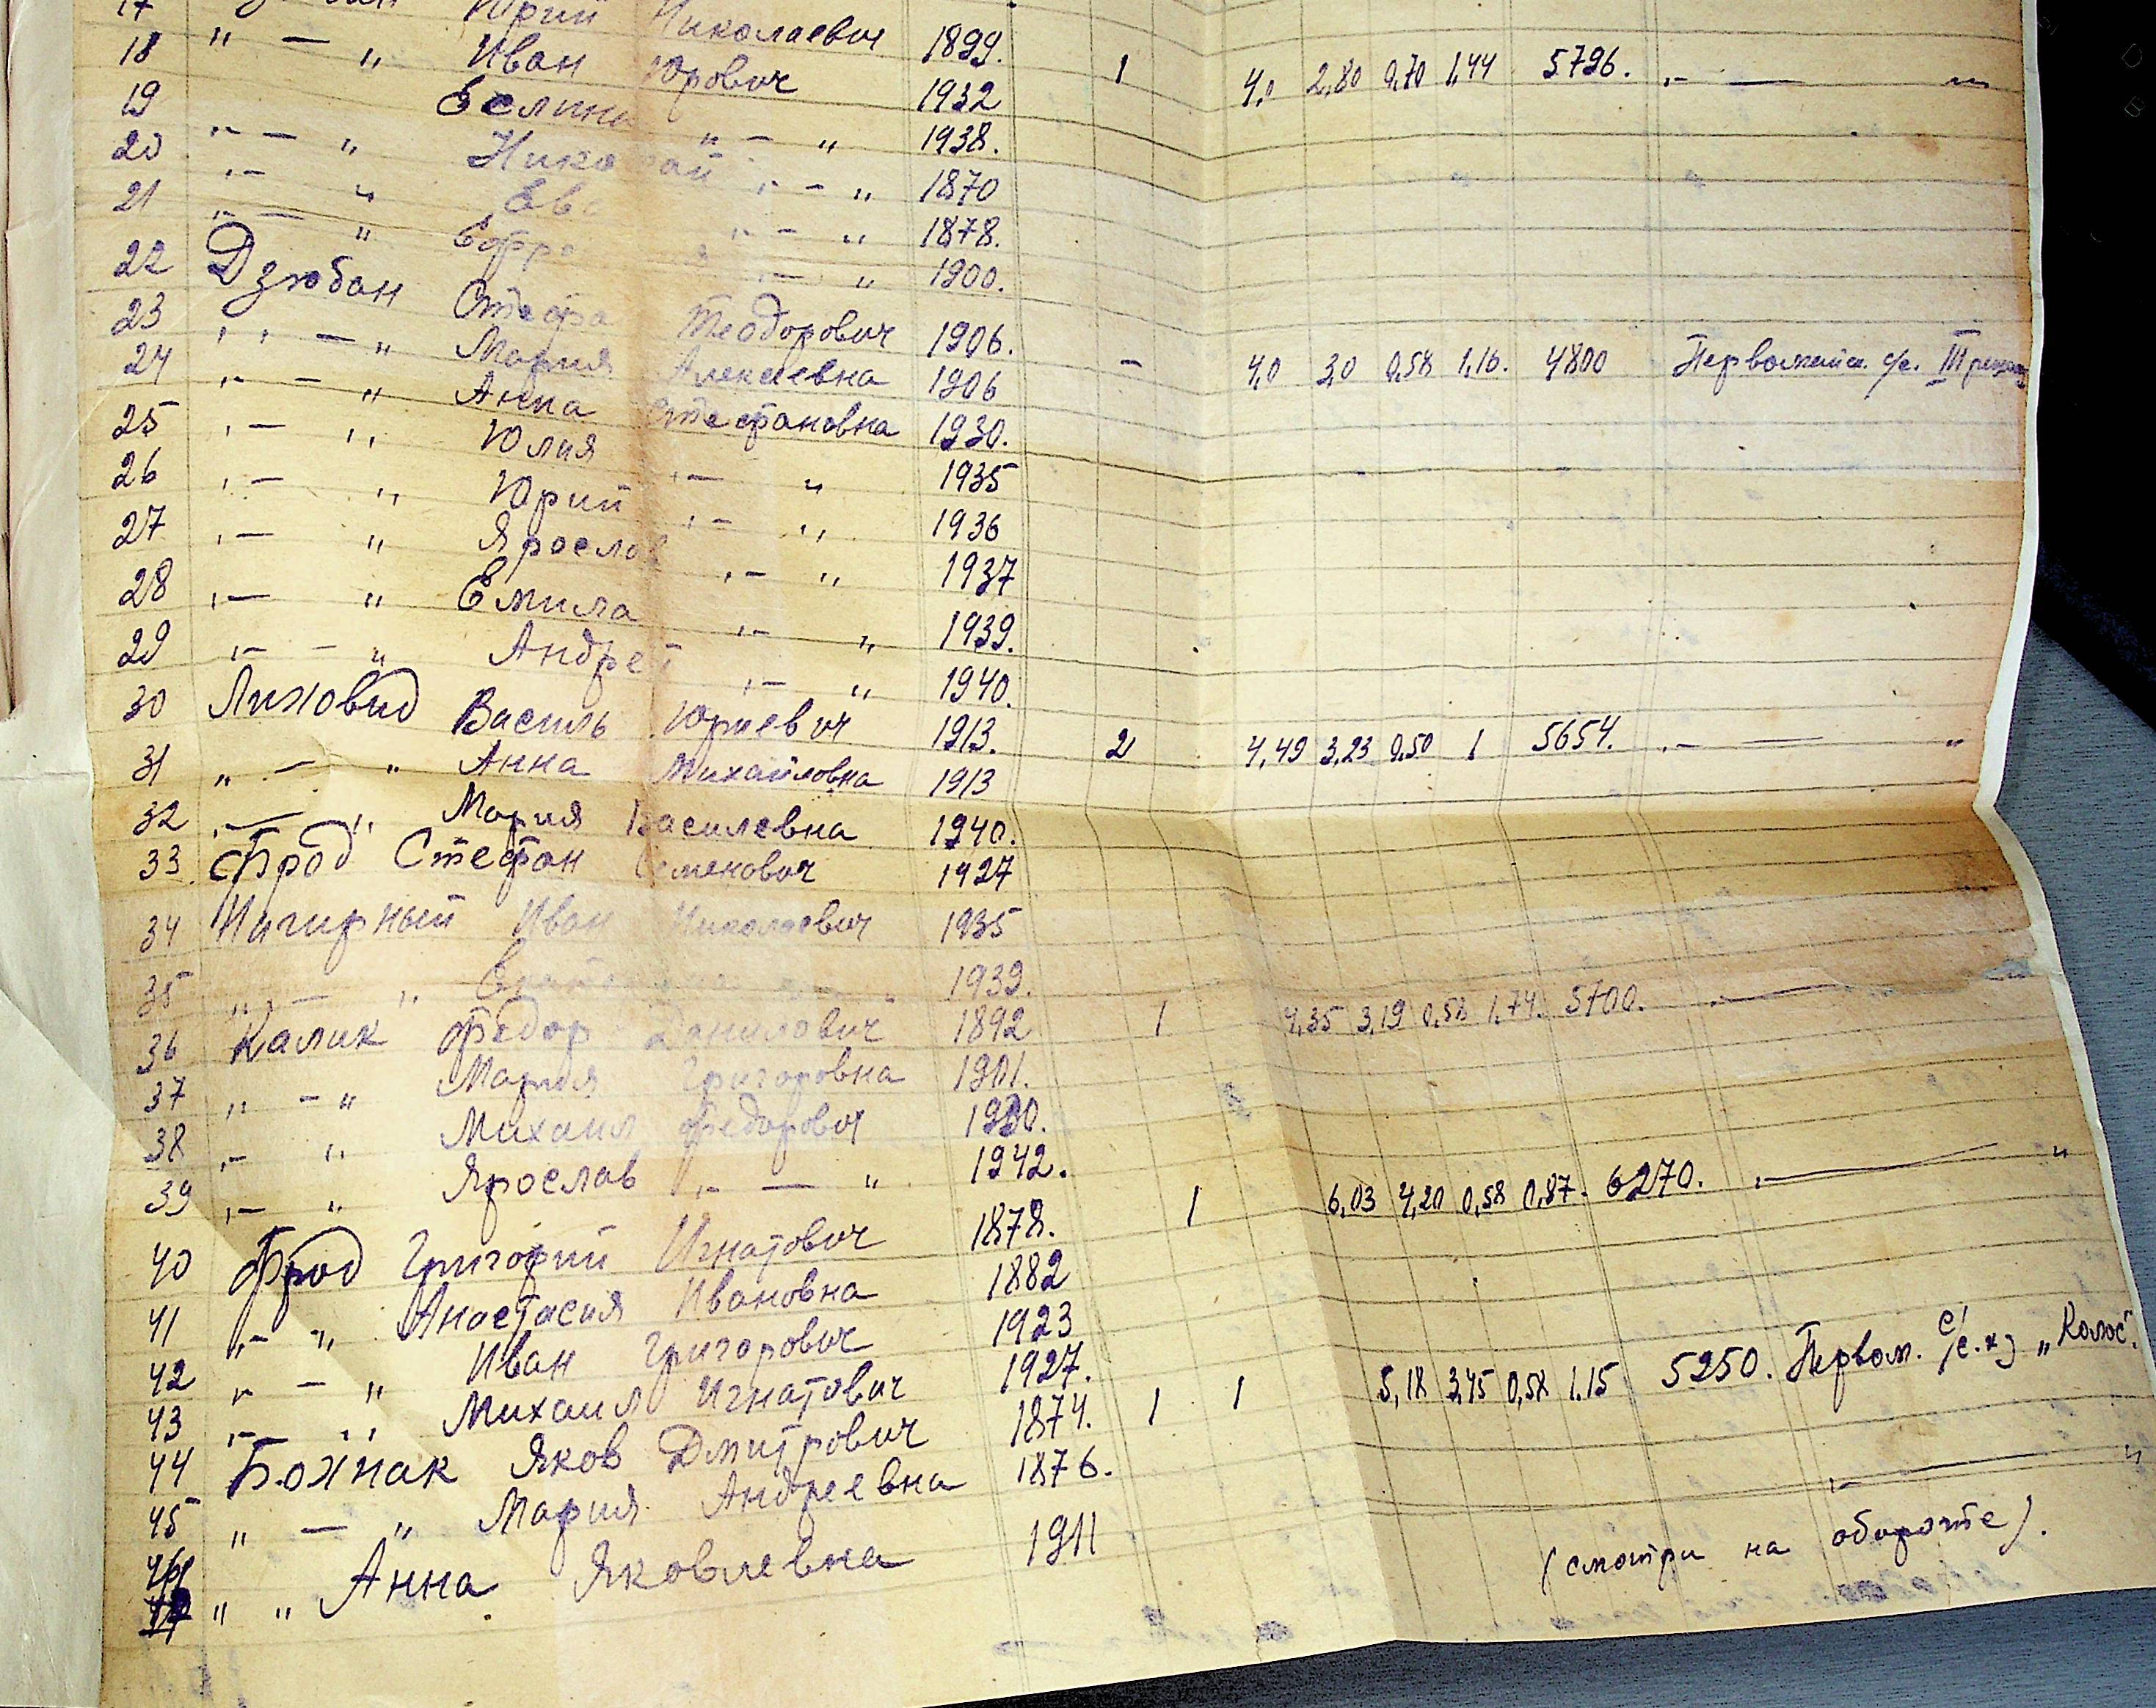 17 Юрий Николаевич 1899. 1 4,0 2,80 0,70 1,44 5796. „ — "
18 " — „ Иван Юрович 1932
19 " — „ " — „ 1938.
20 „ — „ „ — „ 1870
21 „ — " " — „ 1878.
22 Дзюбан Теодорович 1906. — 4,0 3,0 0,58 1,16. 4800 с/с.
23 „ — „ Мария Алексеевна 1906
24 „ — „ Анна Стефановна 1930.
25 „ — „ Юлия „ — „ 1935
26 „ — „ Юрий „ — „ 1936
27 „ — „ Ярослав „ — „ 1937
28 „ — „ Емила „ — „ 1939.
29 „ — „ Андрей „ — „ 1940.
30 Лиховид Василь Юриевич 1913. 2 4,49 3,23 0,50 1 5654. „ — "
31 „ — „ Анна Михайловна 1913
32 „ — „ Мария Василевна 1940.
33 Брод Стефан Семенович 1927
34 Нигирный Иван Николаевич 1935
35 „ — „ 1939.
36 Калик Федор Данилович 1892 1 4,35 3,19 0,58 1,74. 5700. „ —
37 „ — „ Мария Григоровна 1901.
38 „ — „ Михаил Федорович 1930.
39 „ — „ Ярослав „ — „ 1942.
40 Брод Григорий Игнатович 1878. 1 6,03 4,20 0,58 0,87. 6270. „ — "
41 „ — „ Анастасия Ивановна 1882
42 „ — „ Иван Григорович 1923
43 „ — „ Михаил Игнатович 1927.
44 Бохнак Яков Дмитрович 1874. 1 1 5,18 3,45 0,58 1.15 5250. Первом. с/с. к-з „Колос".
45 „ — „ Мария Андреевна 1876. „ — "
46 " " Анна Яковлевна 1911
(смотри на обороте).